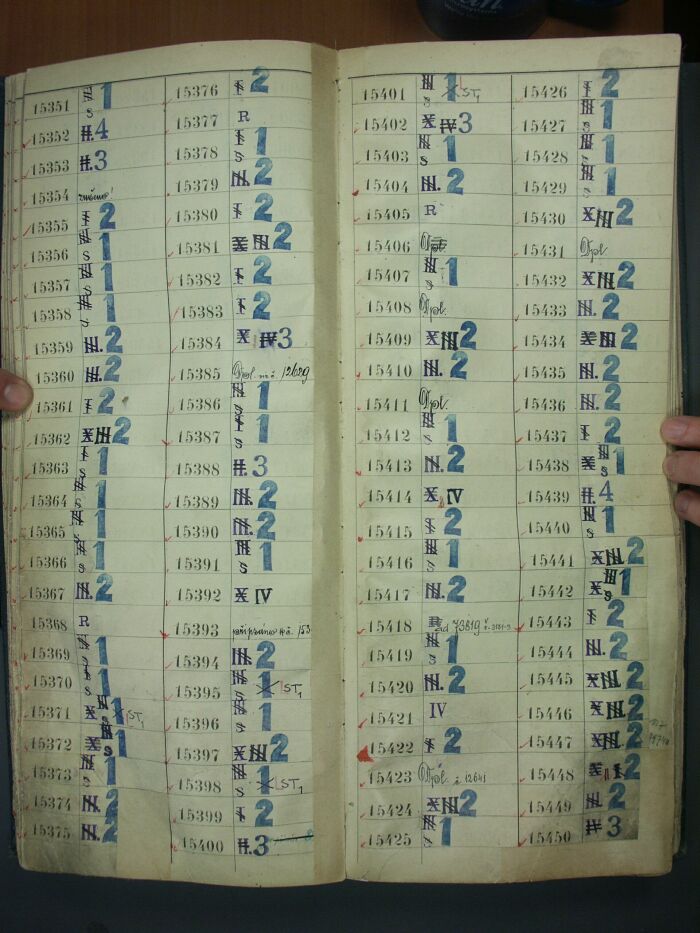 15351 III S 1
15352 II. 4
15353 II. 3
15354
15355 I 2
15356 III S 1
15357 III S 1
15358 III S 1
15359 III. 2
15360 III. 2
15361 I 2
15362 X III 2
15363 I S 1
15364 III S 1
15365 III S 1
15366 III S 1
15367 III. 2
15368 R
15369 III S 1
15370 I S 1
15371 X III S 1 X ST1
15372 X III S 1
15373 III S 1
15374 III. 2
15375 III. 2
15376 I 2
15377 R
15378 I S 1
15379 III. 2
15380 I 2
15381 X III 2
15382 I 2
15383 I 2
15384 X IV 3
15385 Dpl. m č. 12629
15386 III S 1
15387 I S 1
15388 II. 3
15389 III. 2
15390 III. 2
15391 III S 1
15392 X IV
15393 připsáno k č. 153
15394 III. 2
15395 III S 1 X ST1
15396 III S 1
15397 X III 2
15398 III S 1 X ST1
15399 I 2
15400 II. 3
15401 III S 1 X ST1
15402 X IV 3
15403 III S 1
15404 III. 2
15405 R
15406 Dpl.
15407 III S 1
15408 Dpl.
15409 X III 2
15410 III. 2
15411 Dpl.
15412 III S 1
15413 III. 2
15414 X IV
15415 I 2
15416 III S 1
15417 III. 2
15418 R
15419 III S 1
15420 III. 2
15421 IV
15422 I 2
15423 Dpl. č 12641
15424 X III 2
15425 III S 1
15426 I 2
15427 III S 1
15428 III S 1
15429 III S 1
15430 X III 2
15431 Dpl
15432 X III 2
15433 III. 2
15434 X III 2
15435 III. 2
15436 III. 2
15437 I 2
15438 X III S 1
15439 II. 4
15440 III S 1
15441 X III 2
15442 X III S 1
15443 I 2
15444 III. 2
15445 X III 2
15446 X III 2
15447 X III 2
15448 X I 2
15449 III. 2
15450 II 3